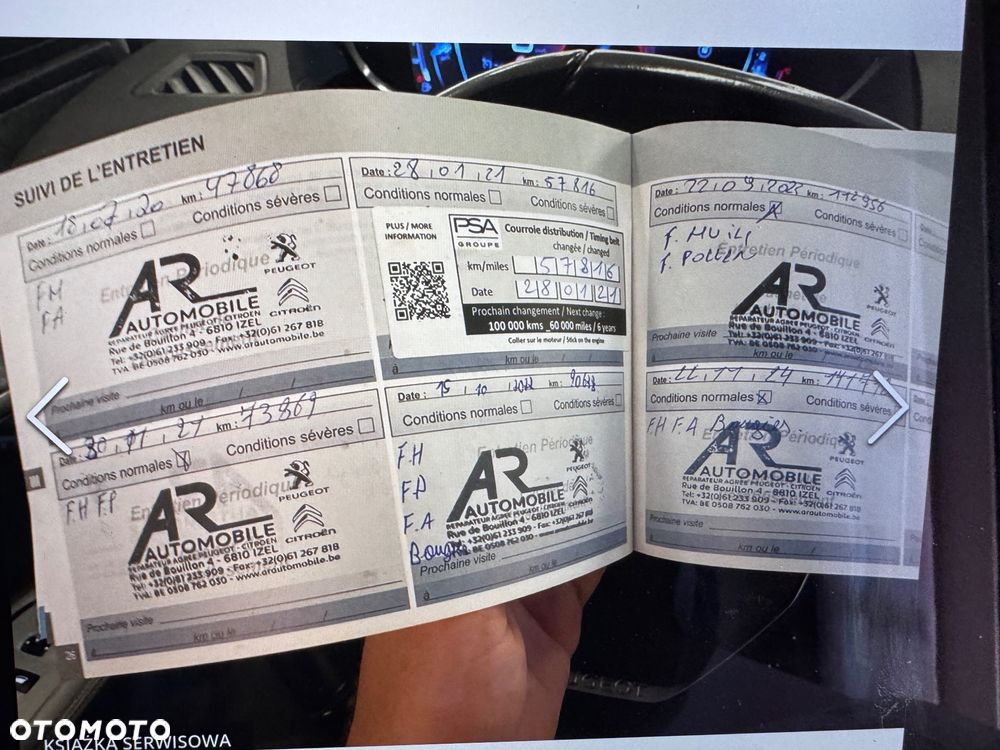 SUIVI DE L'ENTRETIEN
Date : 18.07.20 km: 47868
Conditions normales
Conditions sévères
FM
FA
Entretien Périodique
AR
AUTOMOBILE
PEUGEOT
CITROËN
REPARATEUR AGREE PEUGEOT - CITROEN
Rue de Bouillon 4 - 6810 IZEL
Tel: +32(0)61 233 909 - Fax: +32(0)61 267 818
TVA: BE 0508 762 030 - www.arautomobile.be
Prochaine visite
km ou le / /
Date : 28.01.21 km : 57816
Conditions normales
Conditions sévères
PLUS / MORE
INFORMATION
PSA
GROUPE
Courroie distribution / Timing belt
changée / changed
km/miles 57816
Date 280121
Prochain changement / Next change :
100 000 kms _60 000 miles / 6 years
Coller sur le moteur / Stick on the engine
à km ou le
Date : 22.09. km : 112956
Conditions normales
Conditions sévères
F. HUILE
F. POLLEN
Entretien Périodique
AR
AUTOMOBILE
PEUGEOT
CITROËN
REPARATEUR AGREE PEUGEOT - CITROEN
Rue de Bouillon 4 - 6810 IZEL
Tel: +32(0)61 233 909 - Fax: +32(0)61 267 818
Prochaine visite
à km ou le
Date : 21 km : 73869
Conditions normales
Conditions sévères
F.H F.P
Entretien Périodique
AR
AUTOMOBILE
PEUGEOT
CITROËN
REPARATEUR AGREE PEUGEOT - CITROEN
Rue de Bouillon 4 - 6810 IZEL
Tel: +32(0)61 233 909 - Fax: +32(0)61 267 818
TVA: BE 0508 762 030 - www.arautomobile.be
Prochaine visite
à km ou le / /
Date : 15.10.2022 km :
Conditions normales
Conditions sévères
F.H
F.P
F.A
Entretien Périodique
AR
AUTOMOBILE
PEUGEOT
CITROËN
REPARATEUR AGREE PEUGEOT - CITROEN
Rue de Bouillon 4 - 6810 IZEL
Tel: +32(0)61 233 909 - Fax: +32(0)61 267 818
BE 0508 762 030 - www.arautomobile.be
Prochaine visite
à km ou le
Date : 11 km :
Conditions normales
Conditions sévères
F.H F.A Bougies
AR
AUTOMOBILE
PEUGEOT
CITROËN
REPARATEUR AGREE PEUGEOT - CITROEN
Rue de Bouillon 4 - 6810 IZEL
Tel: +32(0)61 233 909 - Fax: +32(0)61 267 818
TVA: BE 0508 762 030 - www.arautomobile.be
Prochaine visite
à km ou le /
PEUGEOT
OTOMOTO
KSIĄŻKA SERWISOWA